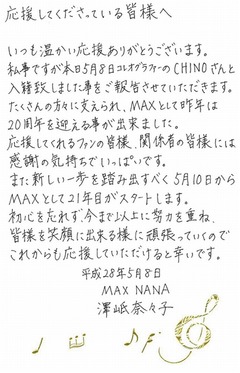 応援してくださっている皆様へ
いつも温かい応援ありがとうございます。
私事ですが本日5月8日コレオグラファーのCHINOさんと
入籍致しました事をご報告させていただきます。
たくさんの方々に支えられ、MAXとして昨年は
20周年を迎える事が出来ました。
応援してくれるファンの皆様、関係者の皆様には
感謝の気持ちでいっぱいです。
また新しい一歩を踏み出すべく5月10日から
MAXとして21年目がスタートします。
初心を忘れず、今まで以上に努力を重ね、
皆様を笑顔に出来る様に頑張っていくので
これからも応援していただけると幸いです。
平成28年5月8日
MAX NANA
澤岻奈々子